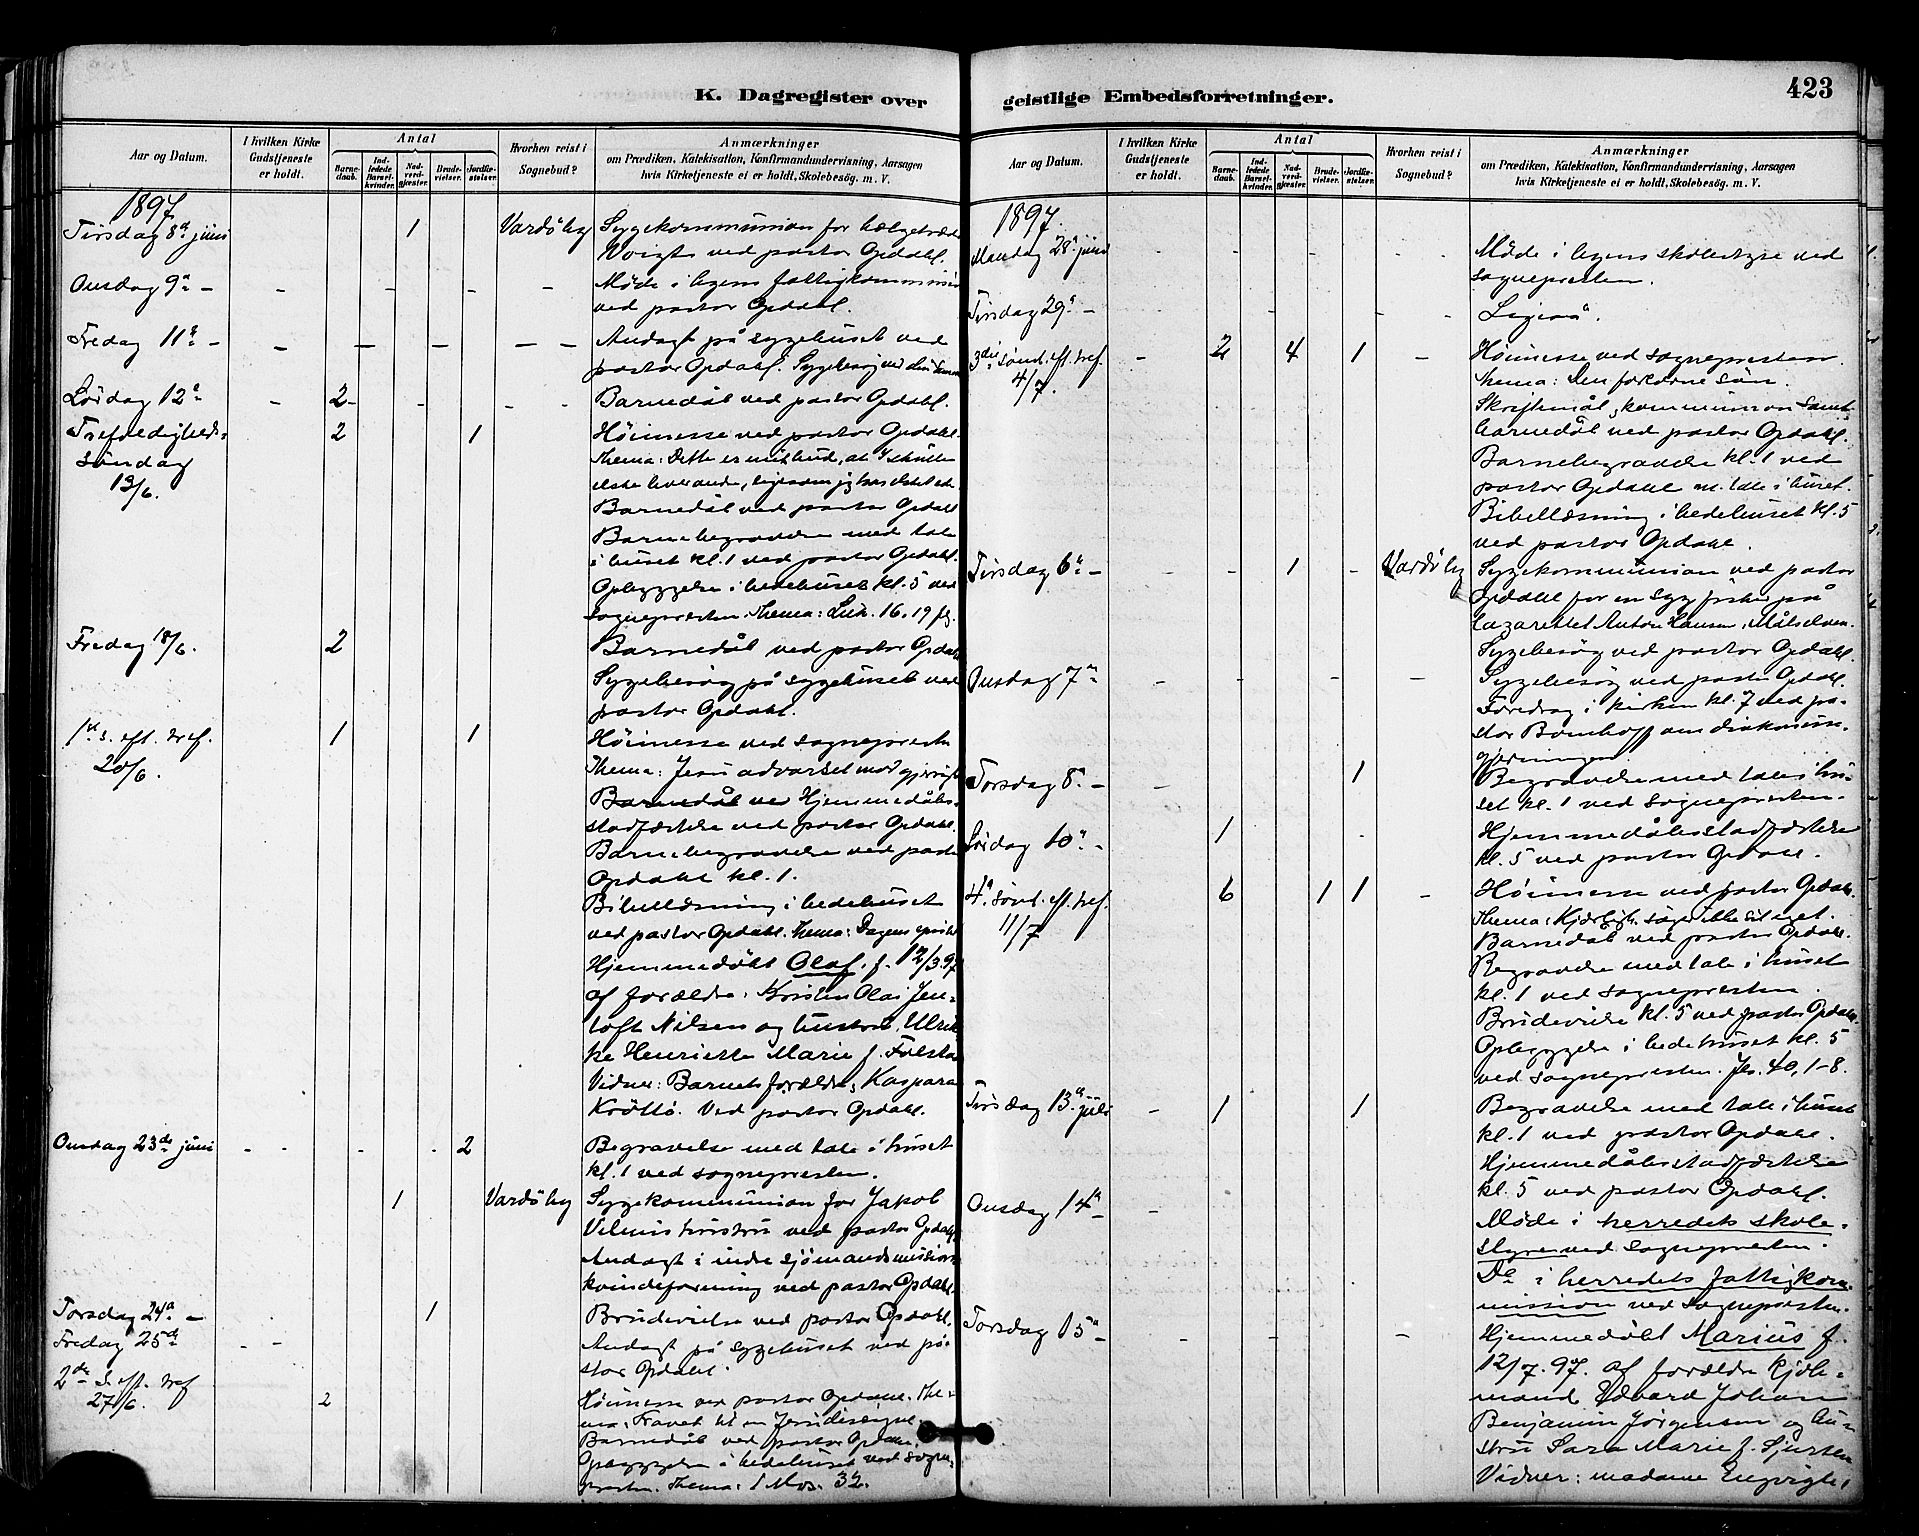 423
K. Dagregister over
Aar og Datum.
I hvilken Kirke Gudstjeneste er holdt.
Antal
Barnedaab.
Indledede Barselkvinder.
Nadverdgjester.
Brudevielser.
Jordfæstelser.
Hvorhen reist i Sognebud?
Anmærkninger
om Prædiken, Katekisation, Konfirmandundervisning, Aarsagen
hvis Kirketjeneste ei er holdt, Skolebesøg. m. V.
1897
Tirsdag 8de juni 1 Vardø by Sygekommunion for
Voigt ved pastor Opdahl.
Onsdag 9de - Møde i byens fattigkommission
ved pastor Opdahl.
Fredag 11te - Andagt på sygehuset ved
pastor Opdahl. Sygebesøg ved
Lørdag 12te 2 Barnedåb ved pastor Opdahl.
Trefoldigheds- 2 1 Høimesse ved pastor Opdahl.
søndag Thema: Dette er mit bud, at I skulle
13/6. elske hverandre, ligesom jeg har elsket eder.
Barnedåb ved pastor Opdahl
Barnebegravelse med tale
i huset kl. 1 ved pastor Opdahl.
Opbyggelse i bedehuset kl. 5 ved
sognepresten. Thema: Luk. 16. 19 flg.
Fredag 18/6. 2 Barnedåb ved pastor Opdahl
Sygebesøg på sygehuset ved
pastor Opdahl.
1ste s. eft. tref. 1 1 Høimesse ved sognepresten
20/6. Thema: Jesu advarsel mod gjerrighed
Barnedåb ved Hjemmedåbs-
stadfæstelse ved pastor Opdahl.
Barnebegravelse ved pastor
Opdahl kl. 1.
Bibellæsning i bedehuset
ved pastor Opdahl. Thema: Dagens epistel
Hjemmedøbt Olaf, f. 12/3.97
af forældre: Kristen Olai Jen-
toft Nilsen og hustru, Ulrik-
ke Henriette Marie f. Falstad
Vidner: Barnets forældre, Kaspara
Krötto. Ved pastor Opdahl.
Onsdag 23de juni 2 Begravelse med tale i huset
kl. 1 ved sognepresten.
1 Vardø by Sygekommunion for Jakob
hustru ved pastor Opdahl
Andagt i indre sjømandsmissions
kvindeforening ved pastor Opdahl.
Torsdag 24de - 1 Brudevielse ved pastor Opdahl.
Fredag 25de Andagt på sygehuset ved pa-
stor Opdahl.
2den s. eft. tref
27/6. 2 Høimesse ved pastor Opdahl. The-
ma:
Barnedåb ved pastor Opdahl.
Opbyggelse i bedehuset ved sogne-
presten. Thema: 1 Mos. 32.
geistlige Embedsforretninger.
Aar og Datum.
I hvilken Kirke Gudstjeneste er holdt.
Antal
Barnedaab.
Indledede Barselkvinder.
Nadverdgjester.
Brudevielser.
Jordfæstelser.
Hvorhen reist i Sognebud?
Anmærkninger
om Prædiken, Katekisation, Konfirmandundervisning, Aarsagen
hvis Kirketjeneste ei er holdt, Skolebesøg. m. V.
1897.
Mandag 28de juni Møde i byens skolestyre ved
sognepresten.
Tirsdag 29de - Ligeså.
3die sønd. eft. tref. 2 4 1 Høimesse ved sognepresten
4/7. Thema: Den forlorne søn.
Skriftemål, kommunion samt
barnedåb ved pastor Opdahl.
Barnebegravelse kl. 1 ved
pastor Opdahl m. tale i huset.
Bibellæsning i bedehuset kl. 5
ved pastor Opdahl.
Tirsdag 6te - 1 Vardø by Sygekommunion ved pastor
Opdahl for en syg fisker på
lazarettet Anton Hansen, Målselven.
Sygebesøg ved pastor Opdahl.
Onsdag 7de Sygebesøg ved pastor Opdahl.
Foredrag i kirken kl. 7 ved pa-
stor Bomhoff om diakonisse-
gjerningen.
Torsdag 8de - 1 Begravelse med tale i hu-
set kl. 1 ved sognepresten.
Lørdag 10de - 1 Hjemmedåbsstadfæstelse
kl. 5 ved pastor Opdahl.
4de sønd. eft. tref. 6 1 1 Høimesse ved pastor Opdahl.
11/7 Thema: Kjærligh. søger ikke sit eget.
Barnedåb ved pastor Opdahl.
Begravelse med tale i huset
kl. 1 ved sognepresten.
Brudevielse kl. 5 ved pastor Opdahl.
Opbyggelse i bedehuset kl. 5
ved sognepresten. Jes. 40, 1-8.
Tirsdag 13de juli 1 1 Begravelse med tale i huset
kl. 1 ved pastor Opdahl.
Hjemmedåbsstadfæstelse
kl. 5 ved pastor Opdahl.
Onsdag 14de Møde i herredets skole-
styre ved sognepresten.
Do i herredets fattigkom-
mission ved sognepresten.
Torsdag 15de - Hjemmedøbt Marius f.
12/7.97. af forældre Kjøb-
mand Edvard Johan
Benjamin Jørgensen og hu-
stru Sara Marie f. Sjursen
Vidner: madame Engvigh,